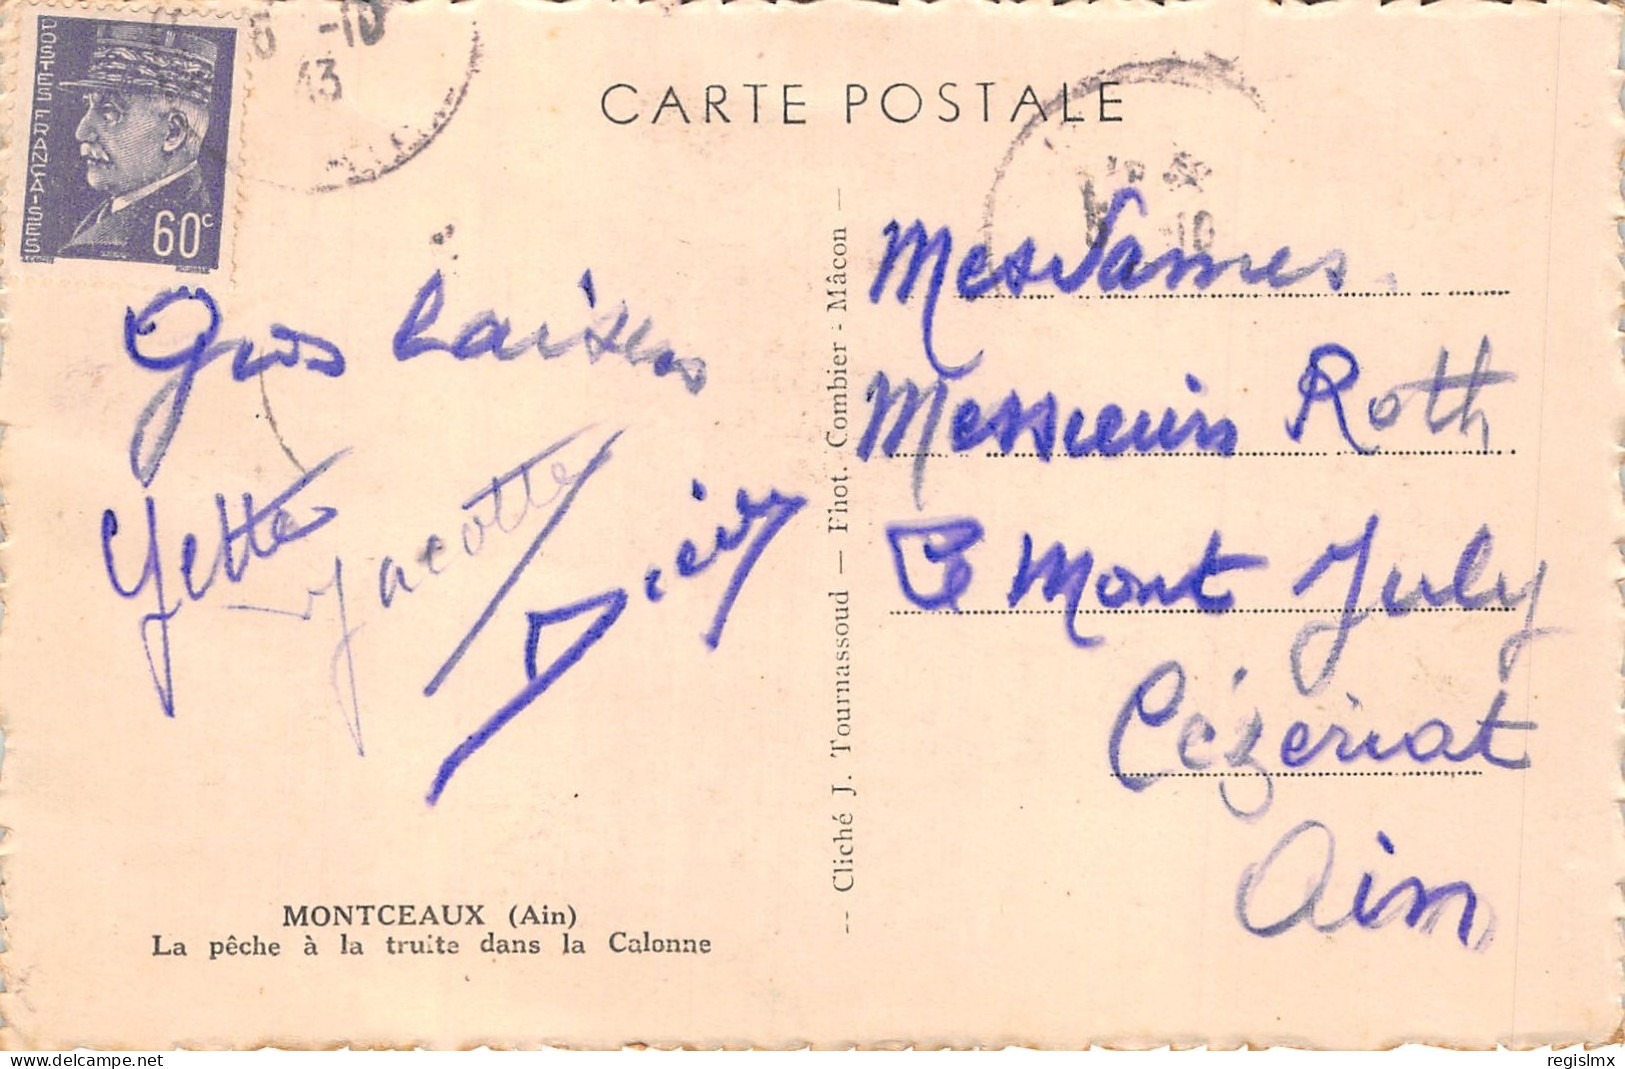 POSTES FRANÇAISES
60c
-10
43
CARTE POSTALE
-10
Gros baisers
Yette Jacotte
Mesdames
Messieurs Roth
Le Mont July
Cézeriat
Ain
MONTCEAUX (Ain)
La pêche à la truite dans la Calonne
-- Cliché J. Tournassoud — Finot. Combier - Mâcon —
www.delcampe.net
regislmx